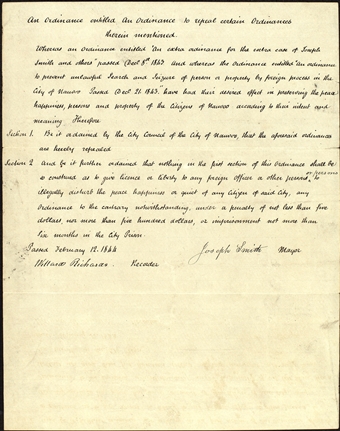 An Ordinance entitled An Ordinance to repeal certain Ordinances
therein mentioned.
Whereas an Ordinance entitled "An extra ordinance for the extra case of Joseph
Smith and others" passed Decr 8th 1843 And whereas the Ordinance entitled "An ordinance
to prevent unlawful Search and Seizure of person or property by foreign process in the
City of Nauvoo Passed Decr 21. 1843" have had their desired effect in preserving the peace
happiness, persons and property of the Citizens of Nauvoo according to their intent and
meaning Therefore
Section 1. Be it ordained by the City Council of the City of Nauvoo, that the aforesaid ordinances
are hereby repealed
Section 2 And be it further ordained that nothing in the first section of this Ordinance shall be
so construed as to give licence or liberty to any foreign officer or other persons, to
illegally disturb the peace happiness or quiet of any Citizen of said City, any
Ordinance to the contrary notwithstanding, under a penalty of not less than five
dollars, nor more than five hundred dollars, or imprisonment not more than
six months in the City Prison.
Passed February 12. 1844 Joseph Smith Mayor
Willard Richards Recorder